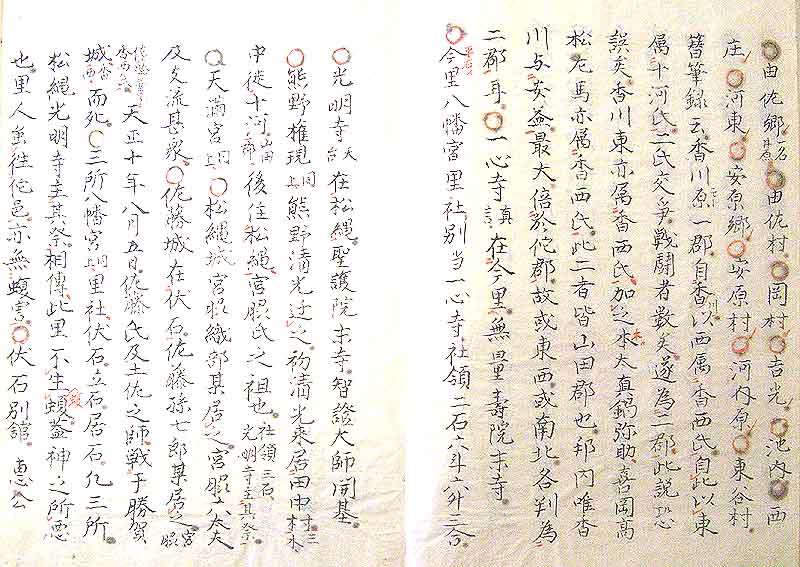 由佐郷一名井原由佐村岡村吉光池内西
庄河東安原郷安原村河内原東谷村
簪筆録云香川原一郡自香以西属香西氏自此以東
属十河氏二氏交争戦闘者数矣遂為二郡此説恐
誤矣香川東亦属香西氏加之本太真鍋弥助喜岡高
松左馬亦属香西氏此二者皆山田郡也邦内唯香
川与安益最大倍於佗郡故或東西或南北各判為
二郡耳一心寺真言在今里無量寿院末寺
今里八幡宮里社別当一心寺社領二石六斗六升三合
光明寺天台在松縄聖護院末寺智證大師開基
熊野権現同上熊野清光迁之初清光来居田中村三木
中徙十河山田郡後住松縄宮脵氏之祖也社領三石光明寺主其祭
天満宮同上松縄城宮脵織部某居之宮脵八太夫
及支流甚衆佐藤城在伏石佐藤孫七郎某居之宮脵
天正十年八月五日佐藤氏及土佐之師戦于勝賀
城香西而死三所八幡宮同上里社伏石立石居石凡三所
松縄光明寺主其祭相傳此里不生蝮蓋神之所悪
也里人雖往佗邑亦無蝮害伏石別舘恵公